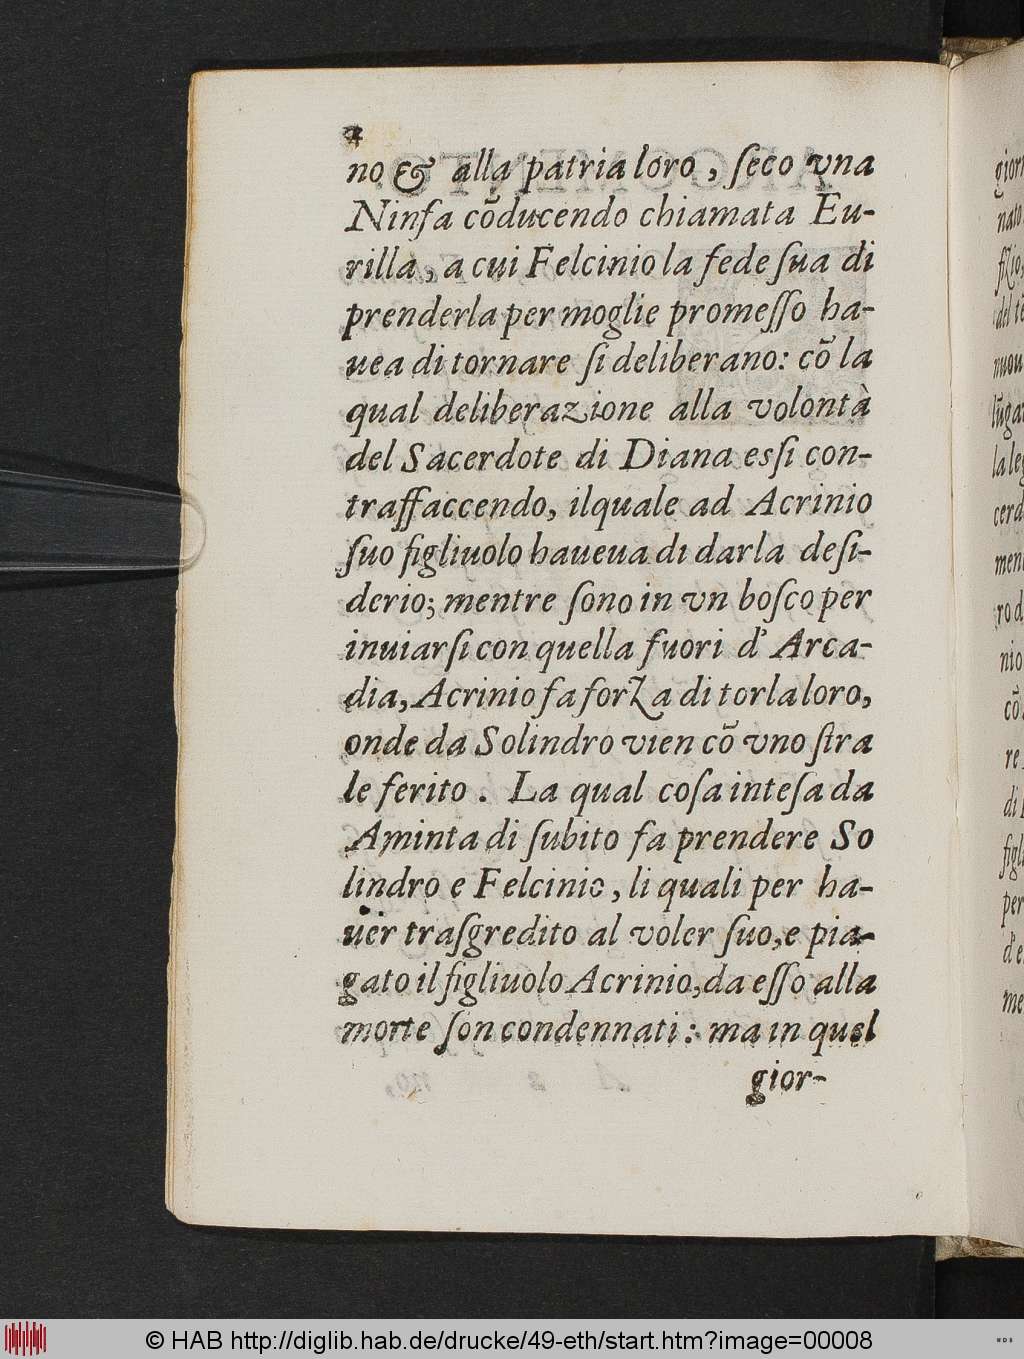 no & alla patria loro, ſeco vna
Ninfa cõducendo chiamata Eu-
rilla, a cui Felcinio la fede ſua di
prenderla per moglie promeſſo ha-
uea di tornare ſi deliberano: cõ la
qual deliberazione alla volontà
del Sacerdote di Diana esſi con-
traffaccendo, ilquale ad Acrinio
ſuo figliuolo haueua di darla deſi-
derio; mentre ſono in vn boſco per
inuiarſi con quella fuori d' Arca-
dia, Acrinio fa forza di torla loro,
onde da Solindro vien cõ vno ſtra
le ferito. La qual coſa inteſa da
Aminta di ſubito fa prendere So
lindro e Felcinio, li quali per ha-
uer traſgredito al voler ſuo, e pia-
gato il figliuolo Acrinio, da eſſo alla
morte ſon condennati: ma in quel
gior-
giorn
nato
del te
nuou
lũgar
la leg
cerd
ment
ro d
nio
cõ
re
di
figli
per
d'e
me
© HAB http://diglib.hab.de/drucke/49-eth/start.htm?image=00008